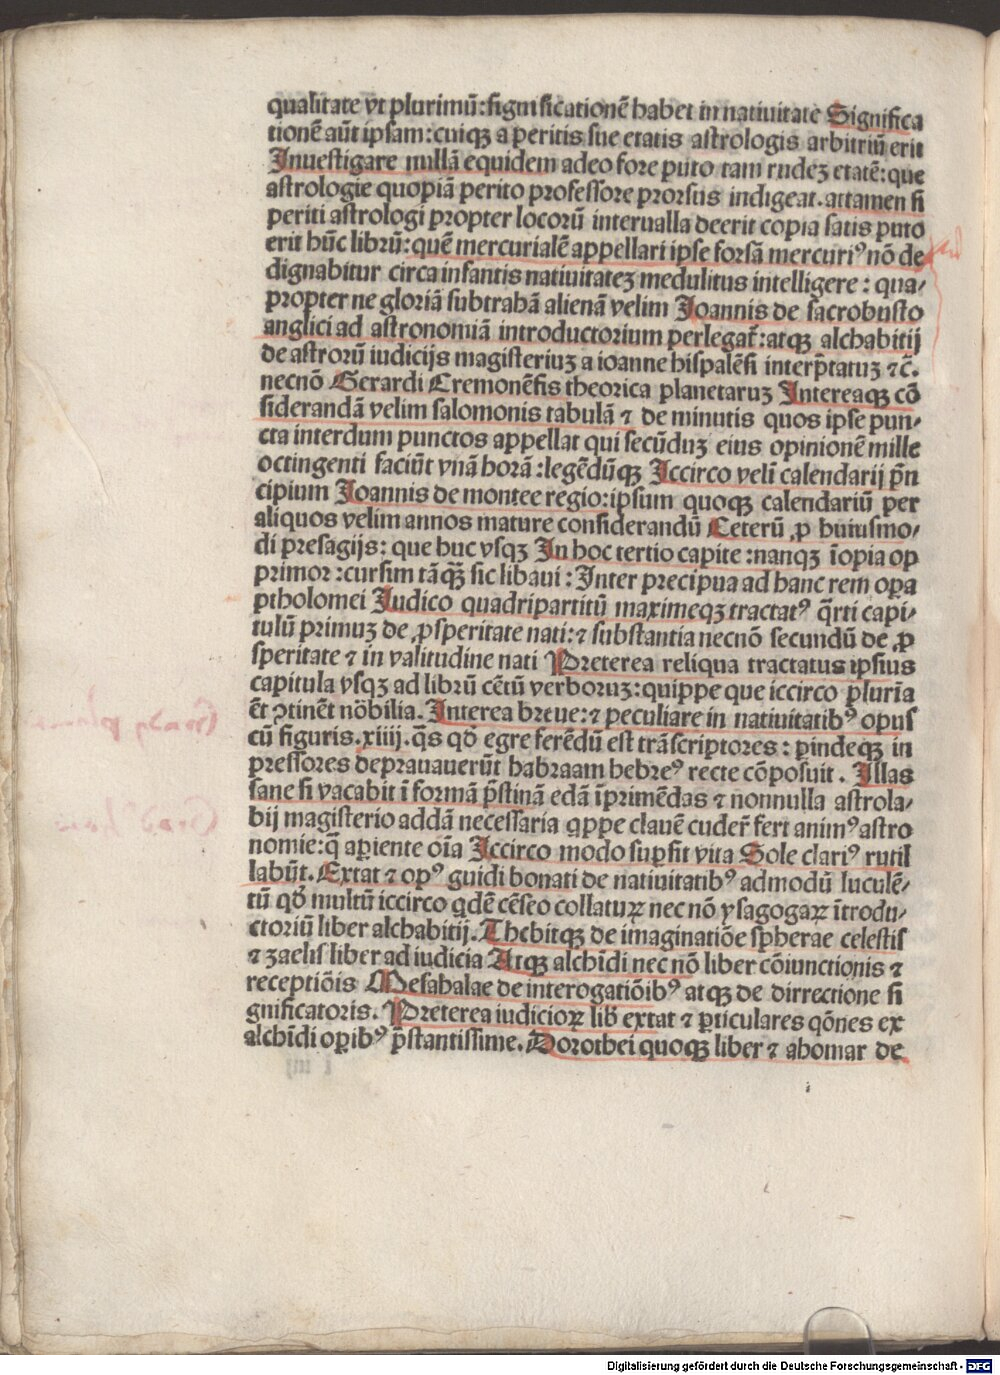 qualitate vt plurimū:significationē habet in nativitate Significa
tionē aūt ipsam:cuiqꝫ a peritis sue etatis astrologis arbitriū erit
Inuestigare nullā equidem adeo fore puto tam rudeꝫ etatē:que
astrologie quopiā perito professore prorsus indigeat.attamen si
periti astrologi propter locorū interualla deerit copia satis puto
erit hūc librū:quē mercurialē appellari ipse forsā mercuriꝰ nō de
dignabitur circa infantis nativitateꝫ medulitus intelligere : qua⸗
propter ne gloriā subtrahā alienā velim Joannis de sacrobusto
anglici ad astronomiā introductorium perlegat̄:atqꝫ alchabitij
de astrorū iudicijs magisteriuꝫ a ioanne hispalēsi interp̄tatuꝫ ⁊ c̄.
necnō Gerardi Cremonēsis theorica planetaruꝫ Intereaqꝫ cō
siderandā velim salomonis tabulā ⁊ de minutis quos ipse pun⸗
cta interdum punctos appellat qui secūduꝫ eius opinionē mille
octingenti faciūt vnā horā:legēdūqꝫ Iccirco veli calendarij p̄n
cipium Joannis de montee regio:ipsum quoqꝫ calendariū per
aliquos velim annos mature considerandū Ceterū ꝓ huiusmo⸗
di presagijs: que huc vsqꝫ In hoc tertio capite :nanqꝫ īopia op
primor:cursim tāq̄ꝫ sic libaui : Inter precipua ad hanc rem oꝑa
ptholomei Iudico quadripartitū maximeqꝫ tractatꝰ q̄rti capi⸗
tulū primuꝫ de ꝓsperitate nati:⁊ substantia necnō secundū de ꝓ
speritate ⁊ in valitudine nati Preterea reliqua tractatus ipsius
capitula vsqꝫ ad librū cētū verboruꝫ:quippe que iccirco pluria
ēt ꝯtinēt nōbilia. Interea breue:⁊ peculiare in nativitatibꝰ opus
cū figuris.xiiij.q̄s qd̄ egre ferēdū est trāscriptores : ꝑindeqꝫ in
pressores deprauauerūt habraam hebreꝰ recte cōposuit . Illas
sane si vacabit ī formā p̄stinā edā īprimēdas ⁊ nonnulla astrola⸗
bij magisterio addā necessaria qꝑpe clauē cuder̄ fert animꝰ astro
nomie:q̄ aꝑiente oīa Iccirco modo suꝑsit vita Sole clariꝰ rutil
labūt. Extat ⁊ opꝰ guidi bonati de nativitatibꝰ admodū luculē⸗
tū qd̄ multū iccirco qdē cēseo collaturꝝ nec nō ysagogaꝝ ītrodu⸗
ctoriū liber alchabitij. Thebitqꝫ de imaginatiōe spherae celestis
⁊ zaelis liber ad iudicia Atqꝫ alchīdi nec nō liber cōiunctionis ⁊
receptiōis Mesahalae de interogatiōibꝰ atqꝫ de dirrectione si
gnificatoris. Preterea iudicioꝝ lib̄ extat ⁊ ꝑticulares qōnes ex
alchīdi oꝑibꝰ p̄stantissime. Dorothei quoqꝫ liber ⁊ ahomar de
Digitalisierung gefördert durch die Deutsche Forschungsgemeinschaft - DFG